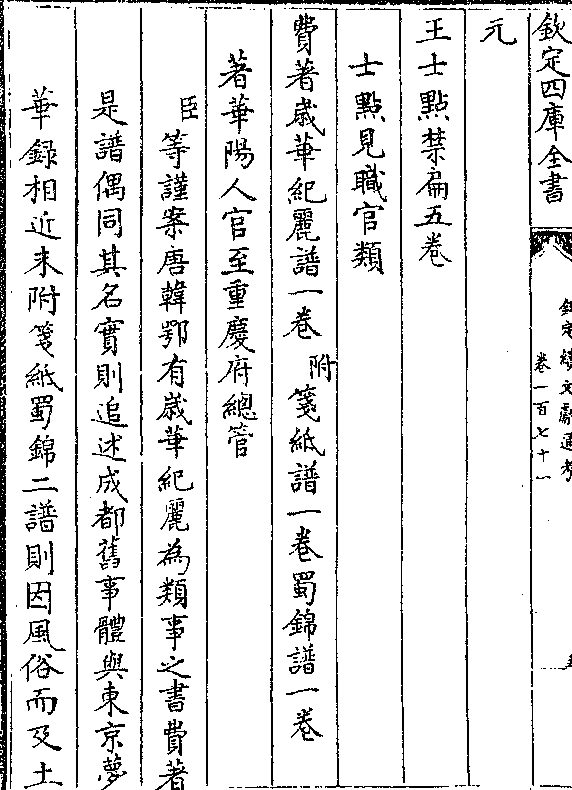 欽定四庫全書
欽定續文獻通考
卷一百七十一
元
王士點禁扁五卷
士點見職官類
費著歲華紀麗譜一卷附箋紙譜一卷蜀錦譜一卷
著華陽人官至重慶府總管
臣等謹案唐韓鄂有歲華紀麗為類事之書費著
是譜偶同其名實則追述成都舊事體與東京夢
華録相近末附箋紙蜀錦二譜則因風俗而及土